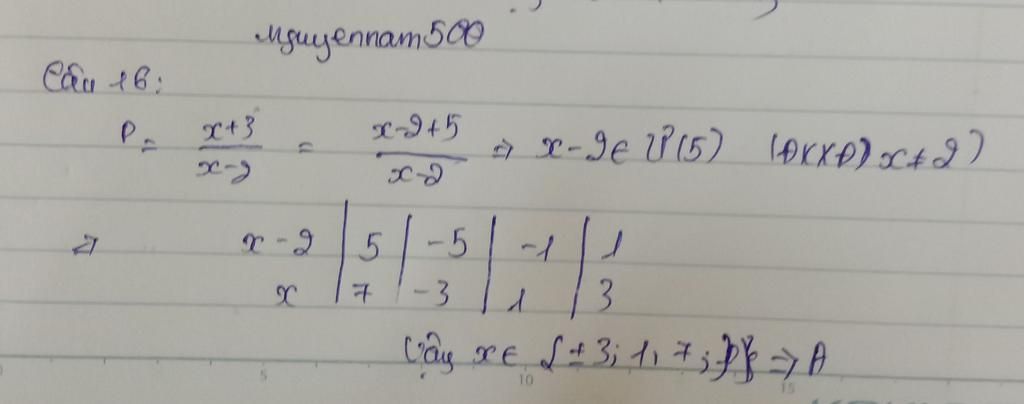 Nguyennam500
Câu 16:
P = x+3/x-2 = x-2+5/x-2 => x-2 ∈ Ư(5) (ĐKXĐ) x ≠ 2)
=> x-2 | 5 | -5 | -1 | 1
x | 7 | -3 | 1 | 3
Vậy x ∈ {±3; 1; 7; } => A
5 10 15